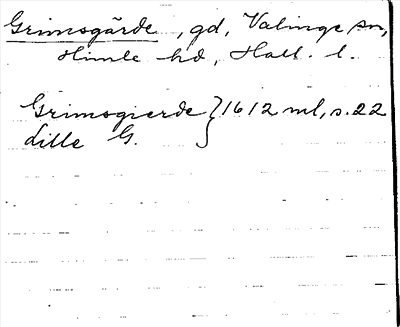 Grimsgärde, gd, Valinge sn,
Himle hd, Hall. l.
Grimsgierde } 1612 ml, s. 22
Lille G.